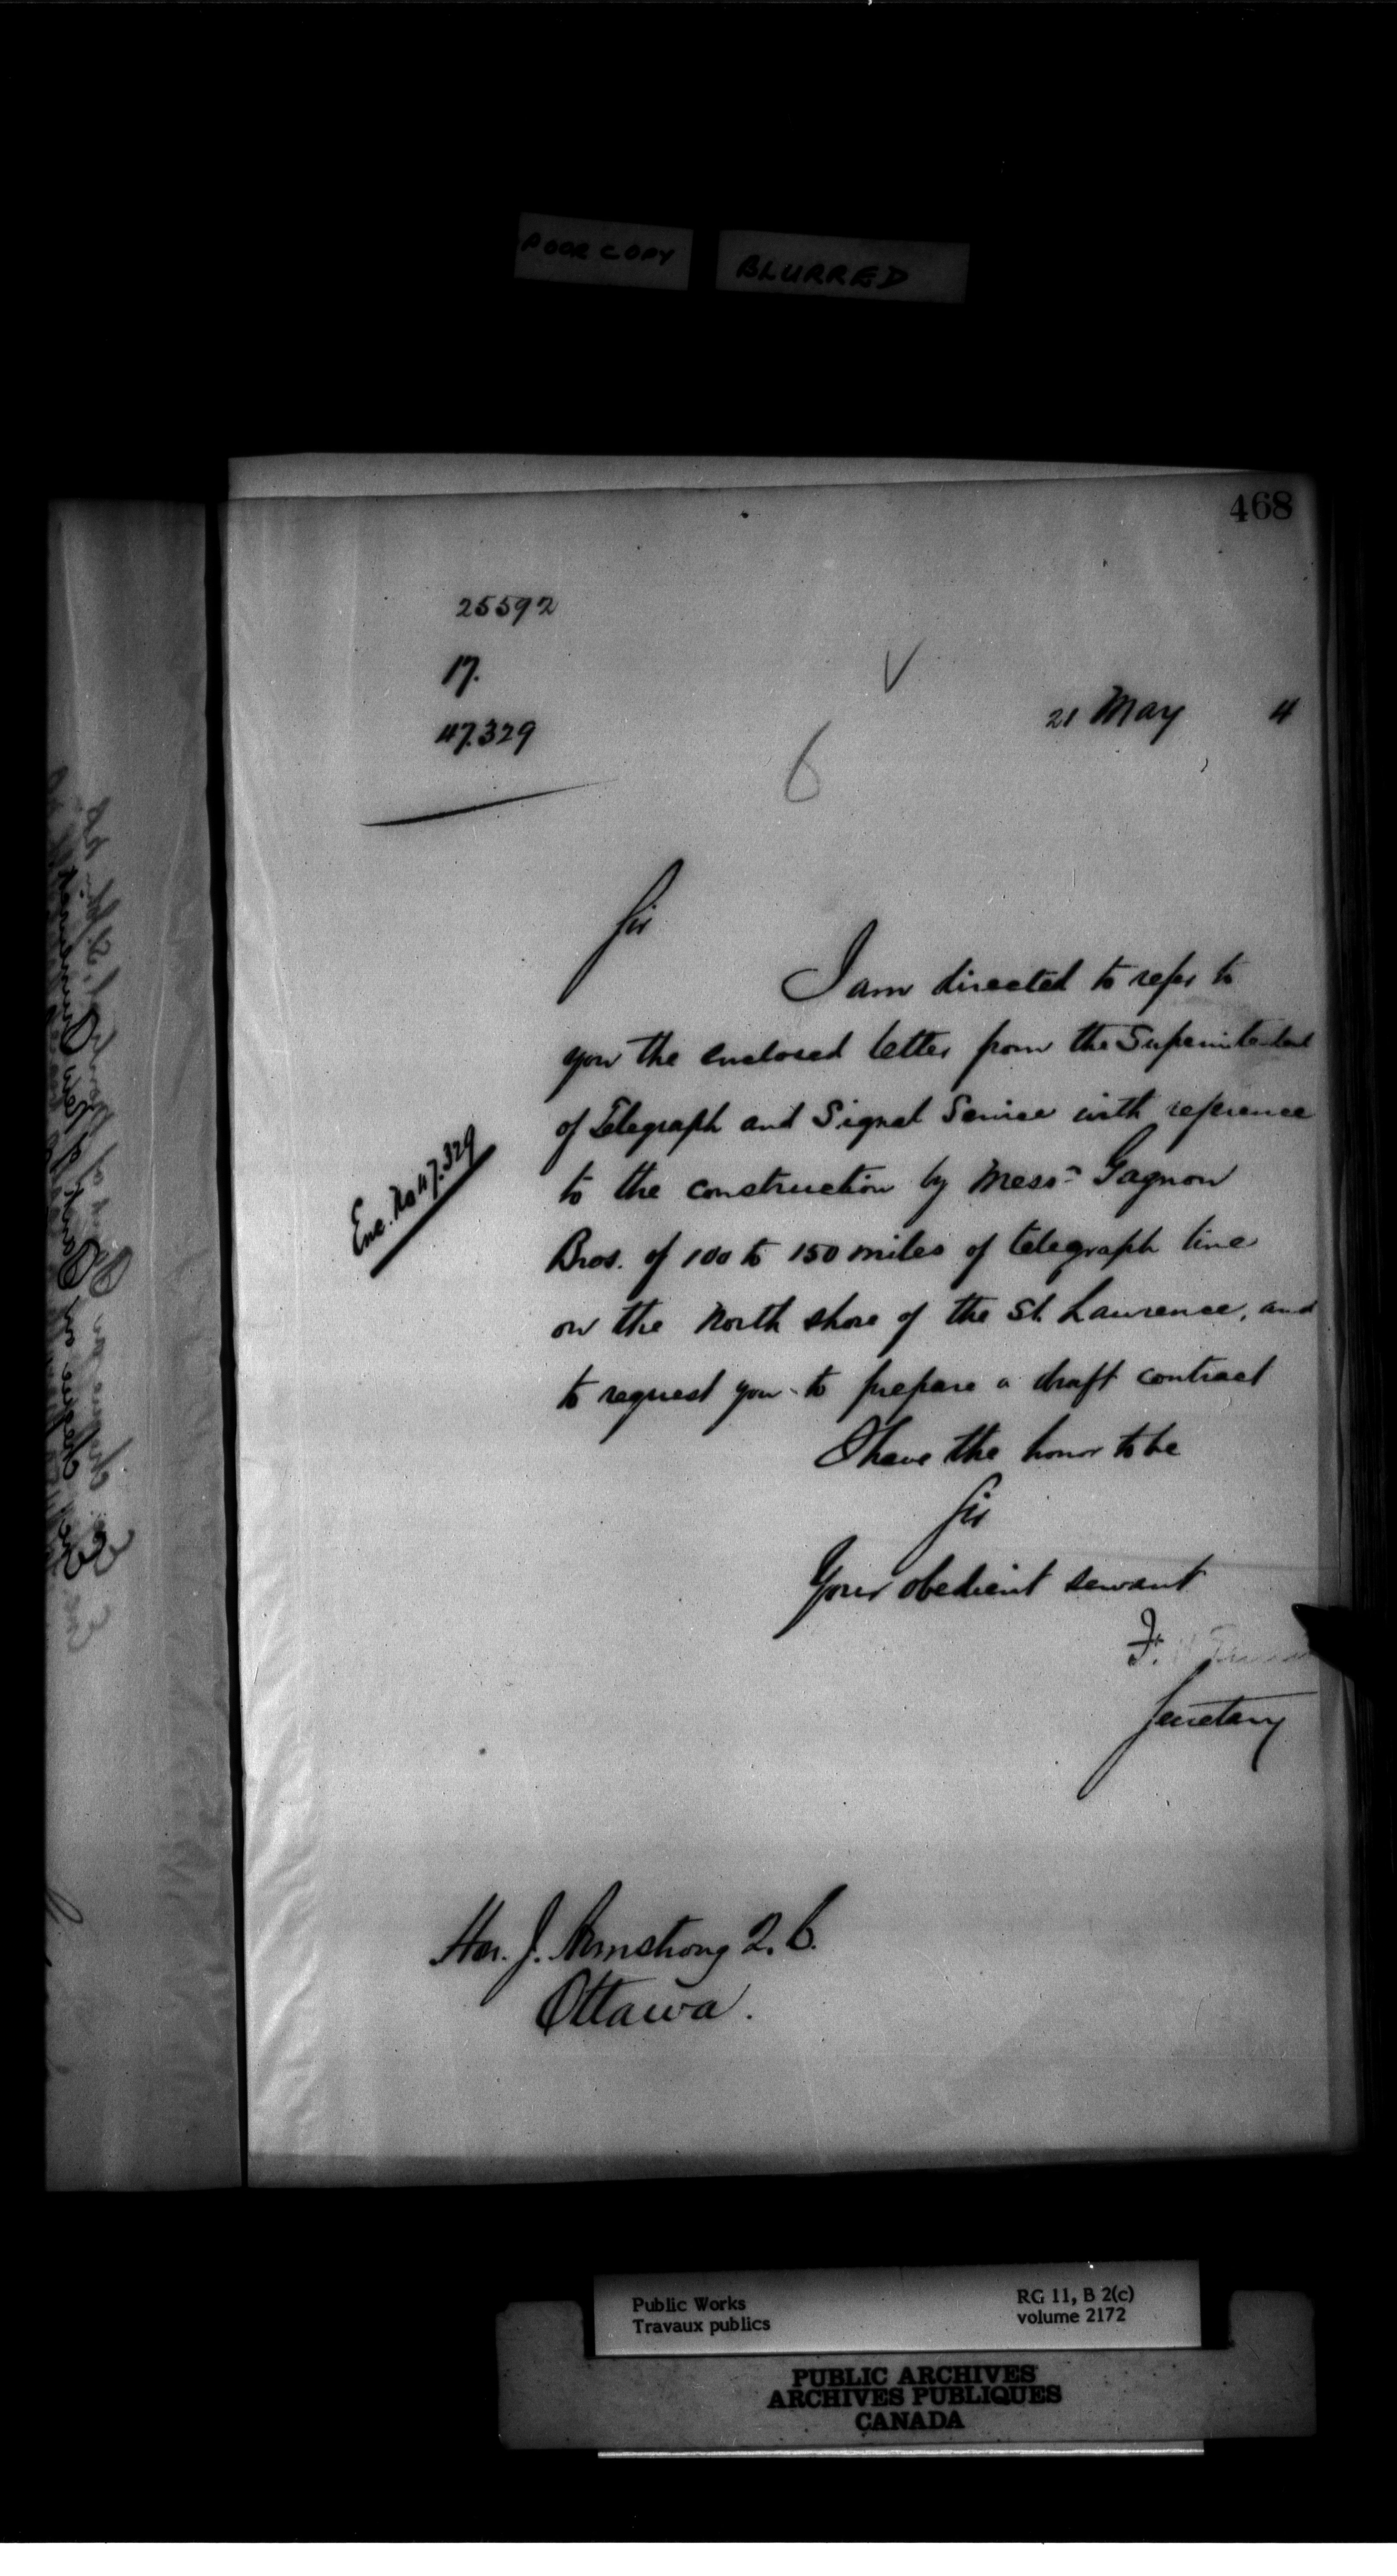 POOR COPY BLURRED
468
25592
17.
47.329
V
6
21 May 4
Sir
I am directed to refer to
you the enclosed letter from the Superintendent
of Telegraph and Signal Service with reference
to the construction by Messrs Gagnon
Enc. No 47.329
Bros. of 100 to 150 miles of telegraph line
on the North shore of the St. Lawrence, and
to request you to prepare a draft contract
I have the honor to be
Sir
Your obedient servant
F.
Secretary
Hon. J. Armstrong Q.C.
Ottawa.
Public Works RG 11, B 2(c)
Travaux publics volume 2172
PUBLIC ARCHIVES
ARCHIVES PUBLIQUES
CANADA